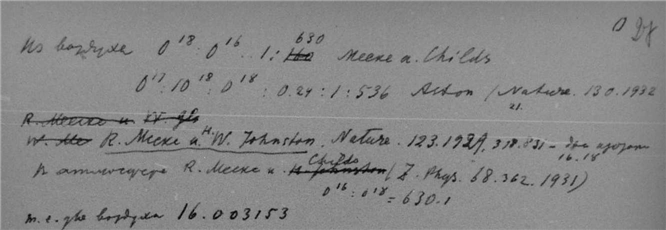 Из воздуха O¹⁸ : O¹⁶ .. 1 : 630 Mecke a. Childs
O¹⁷ : 10¹⁸ : O¹⁸ : 0.24 : 1 : 536 Aston / Nature. 130. 1932
21.
R. Mecke u.
W. Me R. Mecke u. H. W. Johnston. Nature. 123. 1929, 318. 831 – для
16.18
R. Mecke u. Childs (Z. Phys. 68. 362. 1931)
O¹⁶ : O¹⁸ = 630.1
т.е. для воздуха 16.003153